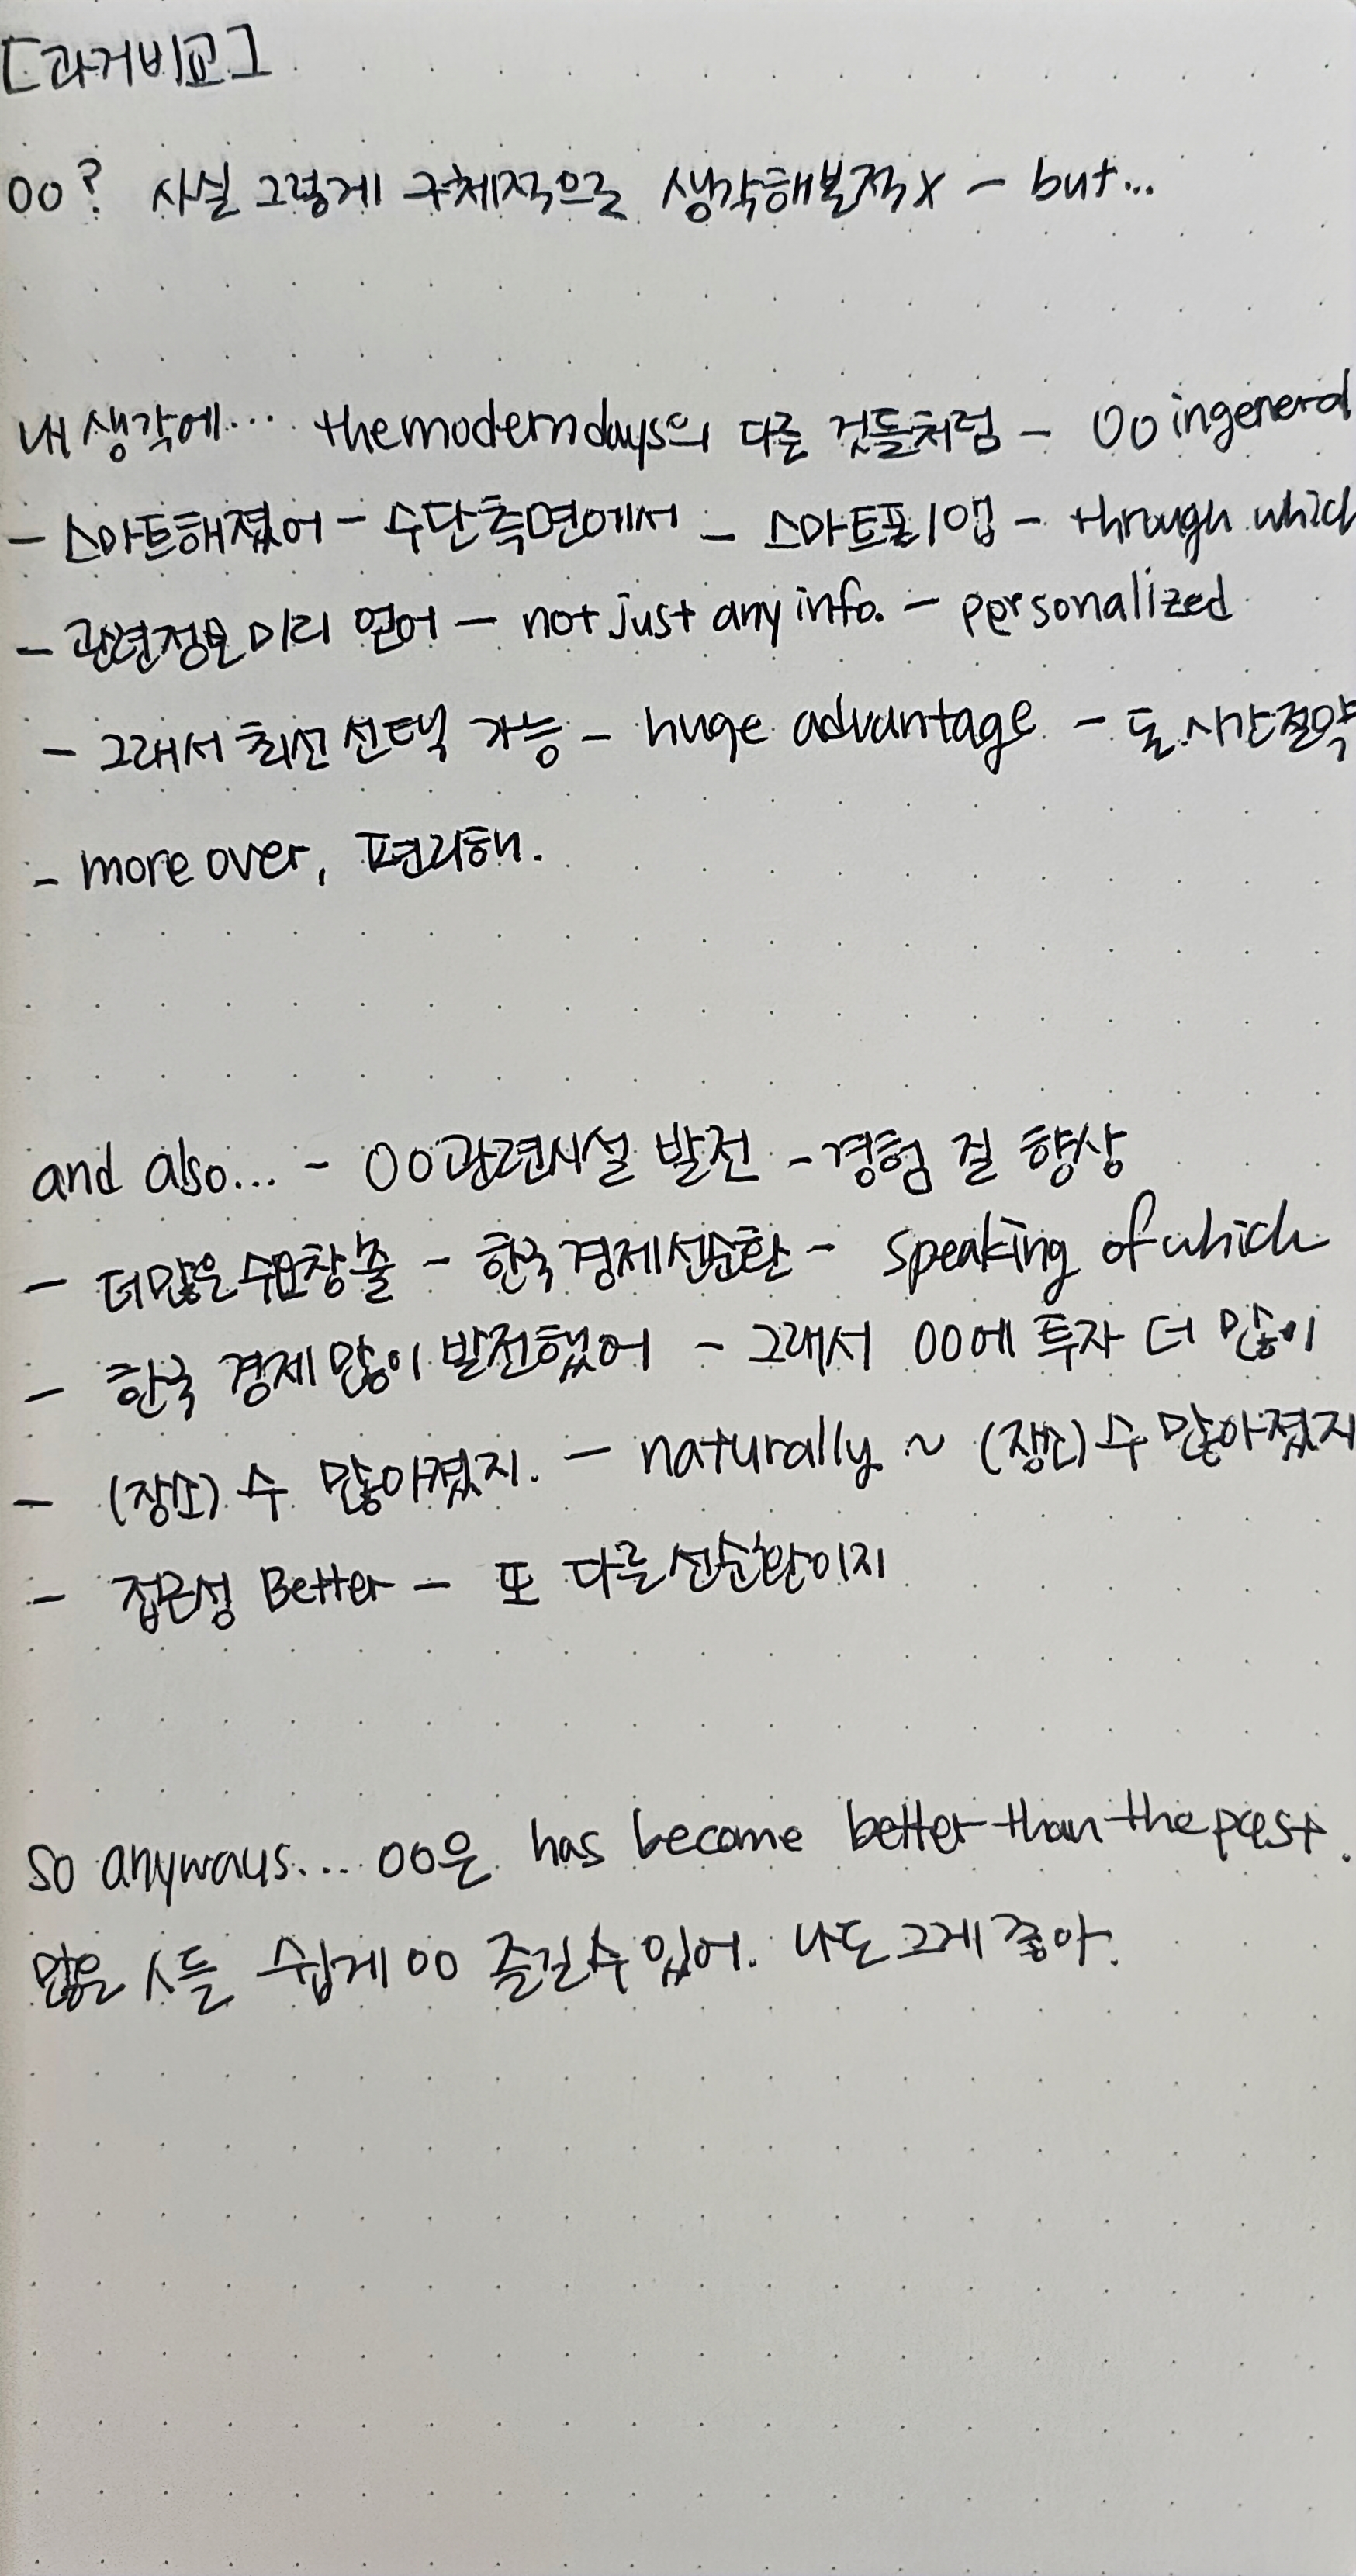 [과거비교]
00? 사실 그렇게 구체적으로 생각해본적x - but...
내 생각에... the modern days의 다른 것들처럼 - 00 in general
- 스마트해졌어 - 수단측면에서 - 스마트폰/앱 - through which
- 관련정보 미리 얻어 - not just any info. - personalized
- 그래서 최선 선택 가능 - huge advantage - 돈.시간절약
- more over, 편리해.
and also... - 00관련시설 발전 - 경험 질 향상
- 더많은수요창출 - 한국경제선순환 - speaking of which
- 한국 경제 많이 발전했어 - 그래서 00에 투자 더 많이
- (장소) 수 많아졌지. - naturally ~ (장소) 수 많아졌지
- 접근성 Better - 또 다른 선순환이지
so anyways... 00은 has become better than the past.
많은 人들 쉽게 00 즐길수있어. 나도 그게 좋아.